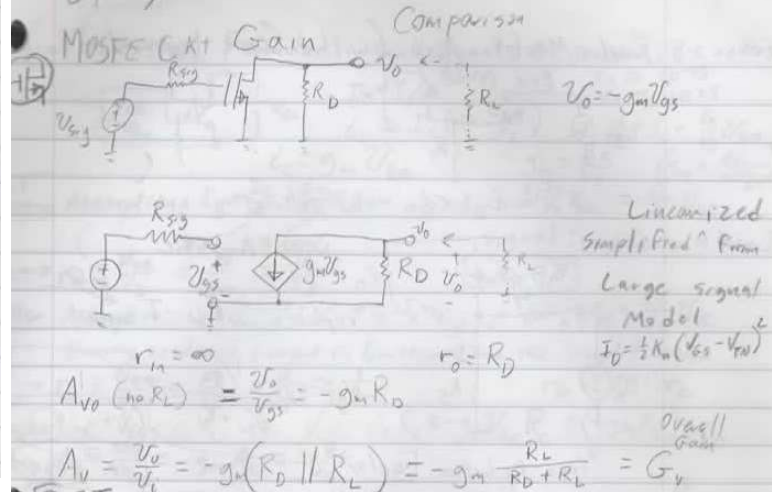 Comparison
MOSFE CKt Gain
R_sig
V_sig
R_D
v_o
R_L
v_o = -g_m v_gs
R_sig
v_gs
+
-
g_m v_gs
R_D
v_o
+
v_o
-
R_L
Linearized
Simplified ^ From
Large signal
Model
I_D = 1/2 K_n (V_GS - V_TN)^2
r_in = ∞
r_o = R_D
A_vo (no R_L) = v_o / v_gs = -g_m R_D
Overall
Gain
A_v = v_o / v_i = -g_m (R_D || R_L) = -g_m R_L / (R_D + R_L) = G_v